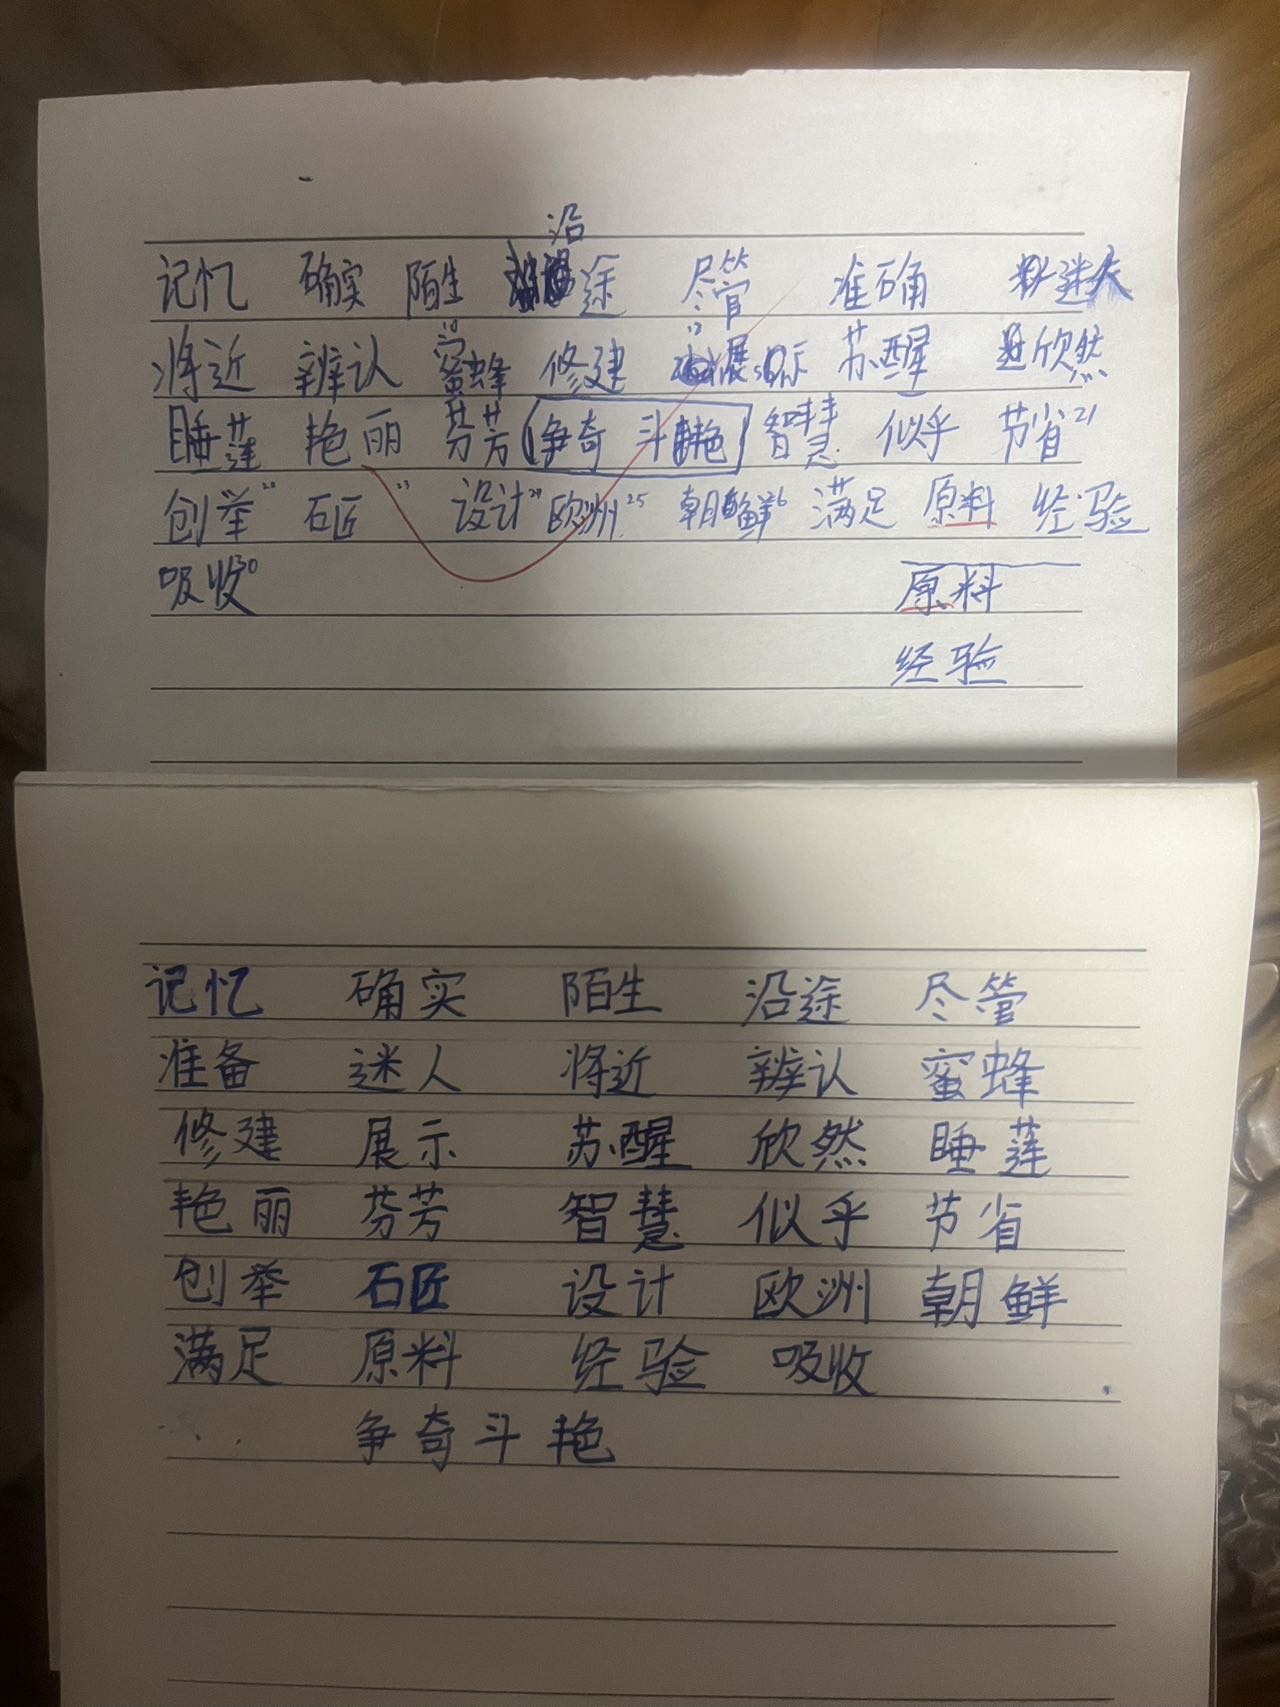 沿
记忆 确实 陌生 途 尽管 准确 迷
将近 辨认 蜜蜂 修建 展示 苏醒 欣然
睡莲 艳丽 芬芳 争奇 斗艳 智慧 似乎 节省21
创举22 石匠23 设计24 欧洲25 朝鲜26 满足 原料 经验
吸收30 原料
经验
记忆 确实 陌生 沿途 尽管
准备 迷人 将近 辨认 蜜蜂
修建 展示 苏醒 欣然 睡莲
艳丽 芬芳 智慧 似乎 节省
创举 石匠 设计 欧洲 朝鲜
满足 原料 经验 吸收
争奇斗艳